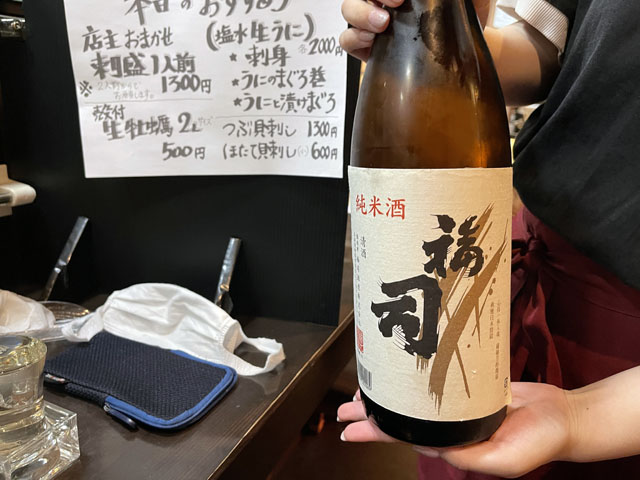 本日のおすすめ
店主おまかせ
刺盛1人前
1300円
殻付
生牡蠣 2コ
500円
(塩水生うに)
各2000円
★刺身
★うにのまぐろ巻
★うにと漬けまぐろ
つぶ貝刺し 1300円
ほたて貝刺し 600円
純米酒
福司
清酒